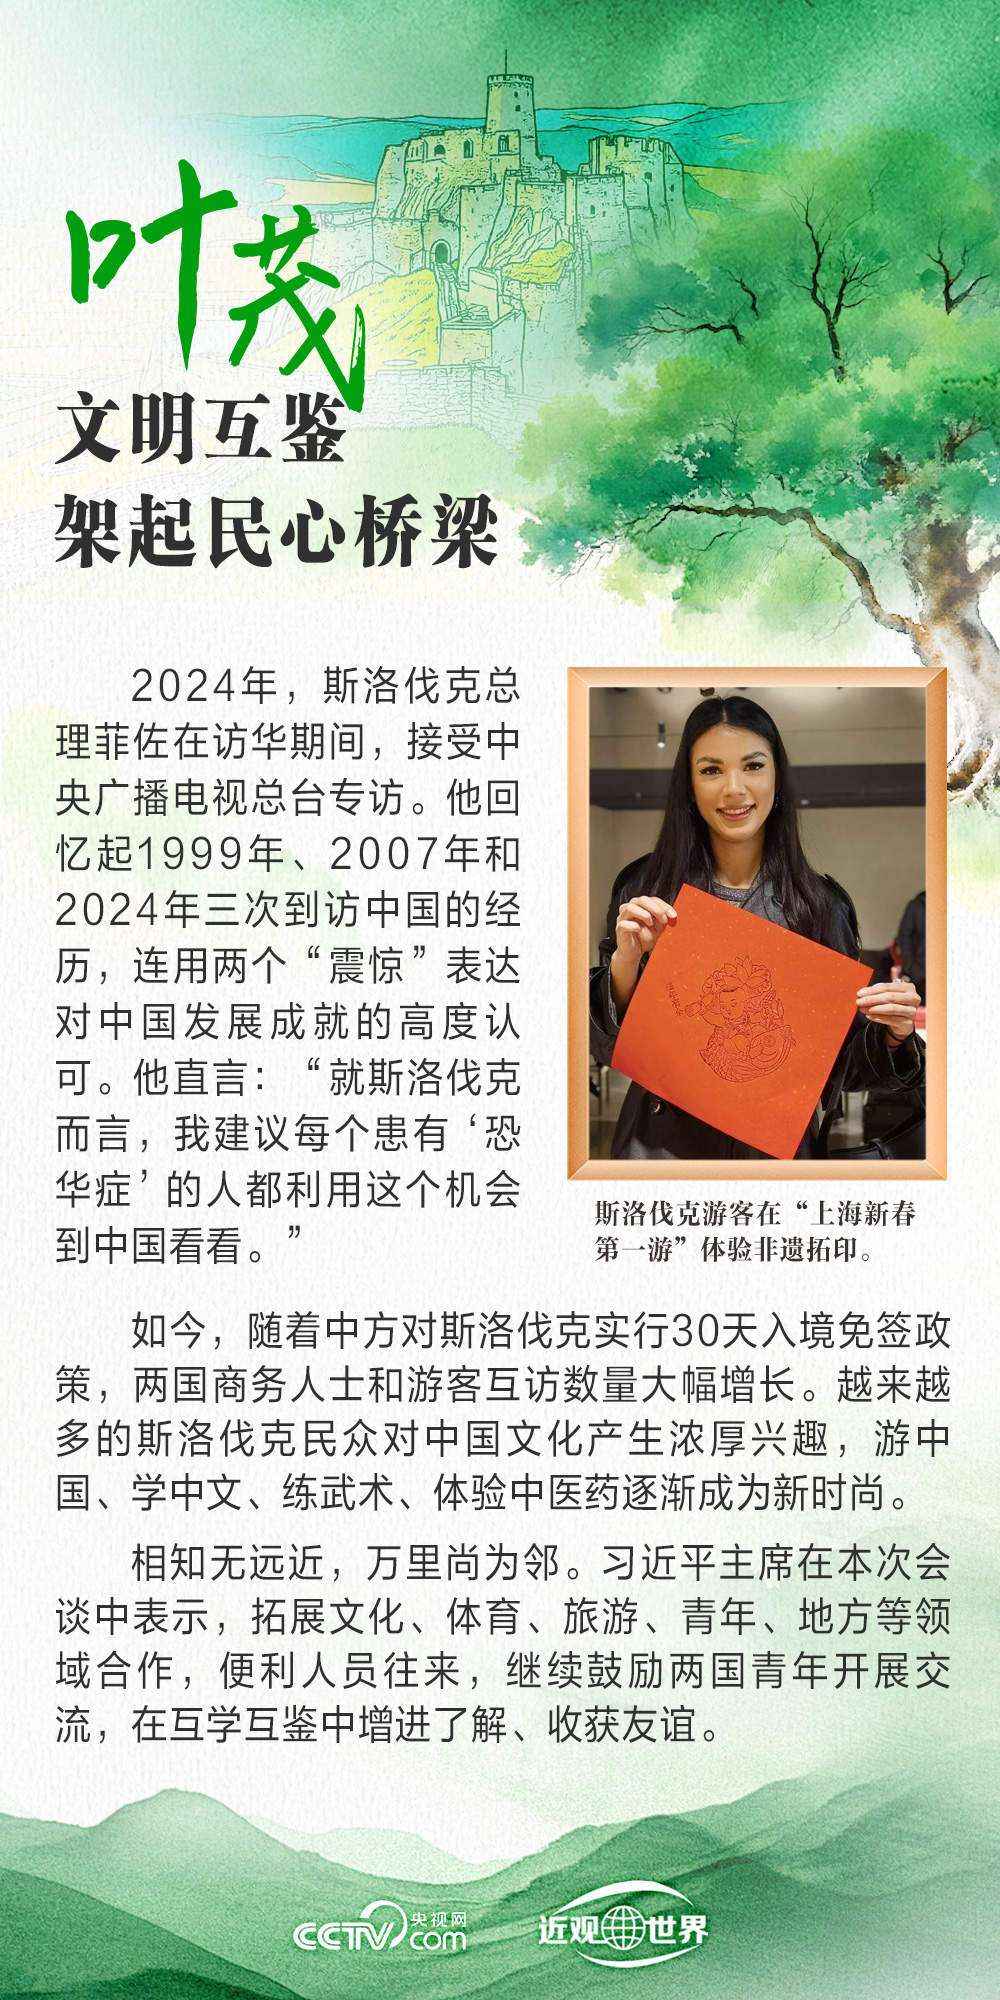 叶茂
文明互鉴
架起民心桥梁
2024年，斯洛伐克总
理菲佐在访华期间，接受中
央广播电视总台专访。他回
忆起1999年、2007年和
2024年三次到访中国的经
历，连用两个“震惊”表达
对中国发展成就的高度认
可。他直言：“就斯洛伐克
而言，我建议每个患有‘恐
华症’的人都利用这个机会
到中国看看。”
斯洛伐克游客在“上海新春
第一游”体验非遗拓印。
如今，随着中方对斯洛伐克实行30天入境免签政
策，两国商务人士和游客互访数量大幅增长。越来越
多的斯洛伐克民众对中国文化产生浓厚兴趣，游中
国、学中文、练武术、体验中医药逐渐成为新时尚。
相知无远近，万里尚为邻。习近平主席在本次会
谈中表示，拓展文化、体育、旅游、青年、地方等领
域合作，便利人员往来，继续鼓励两国青年开展交
流，在互学互鉴中增进了解、收获友谊。
CCTV央视网
com
近观世界